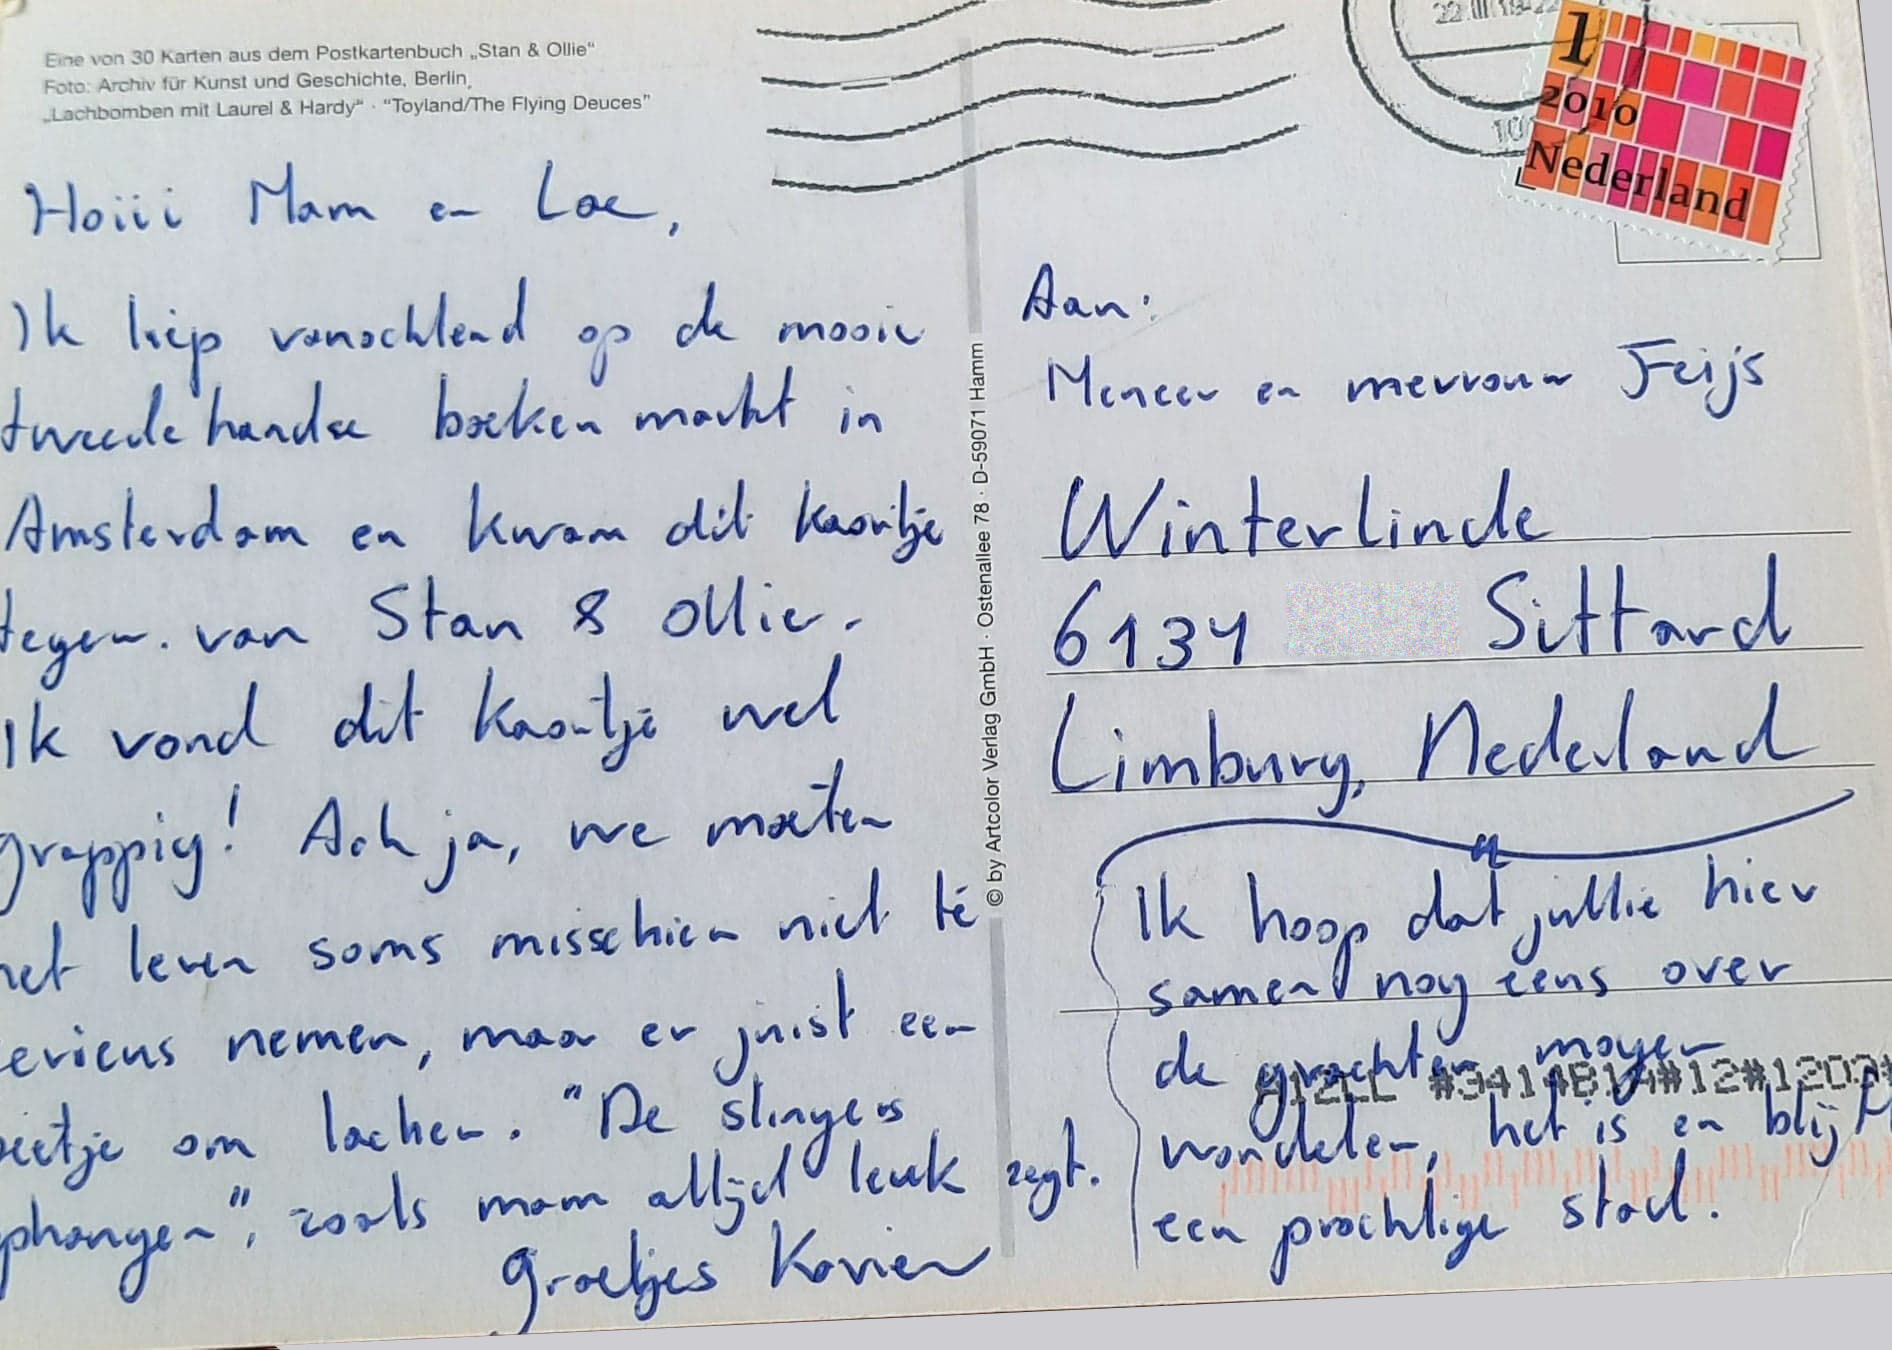 Eine von 30 Karten aus dem Postkartenbuch „Stan & Ollie“
Foto: Archiv für Kunst und Geschichte, Berlin,
„Lachbomben mit Laurel & Hardy“ · “Toyland/The Flying Deuces”
Hoiii Mam en Loe,
Ik liep vanochtend op de mooie
tweedehandse boeken markt in
Amsterdam en kwam dit kaartje
tegen. van Stan & Ollie.
Ik vond dit kaartje wel
grappig! Ach ja, we moeten
het leven soms misschien niet té
serieus nemen, maar er juist een
beetje om lachen. "De slingers
ophangen", zoals mam altijd leuk zegt.
Groetjes Kavien
© by Artcolor Verlag GmbH · Ostenallee 78 · D-59071 Hamm
22 III
1
2010
Nederland
Aan:
Meneer en mevrouw Feijs
Winterlinde
6134 Sittard
Limburg, Nederland
Ik hoop dat jullie hier
samen nog eens over
de grachten mogen
wandelen, het is en blijft
een prachtige stad.